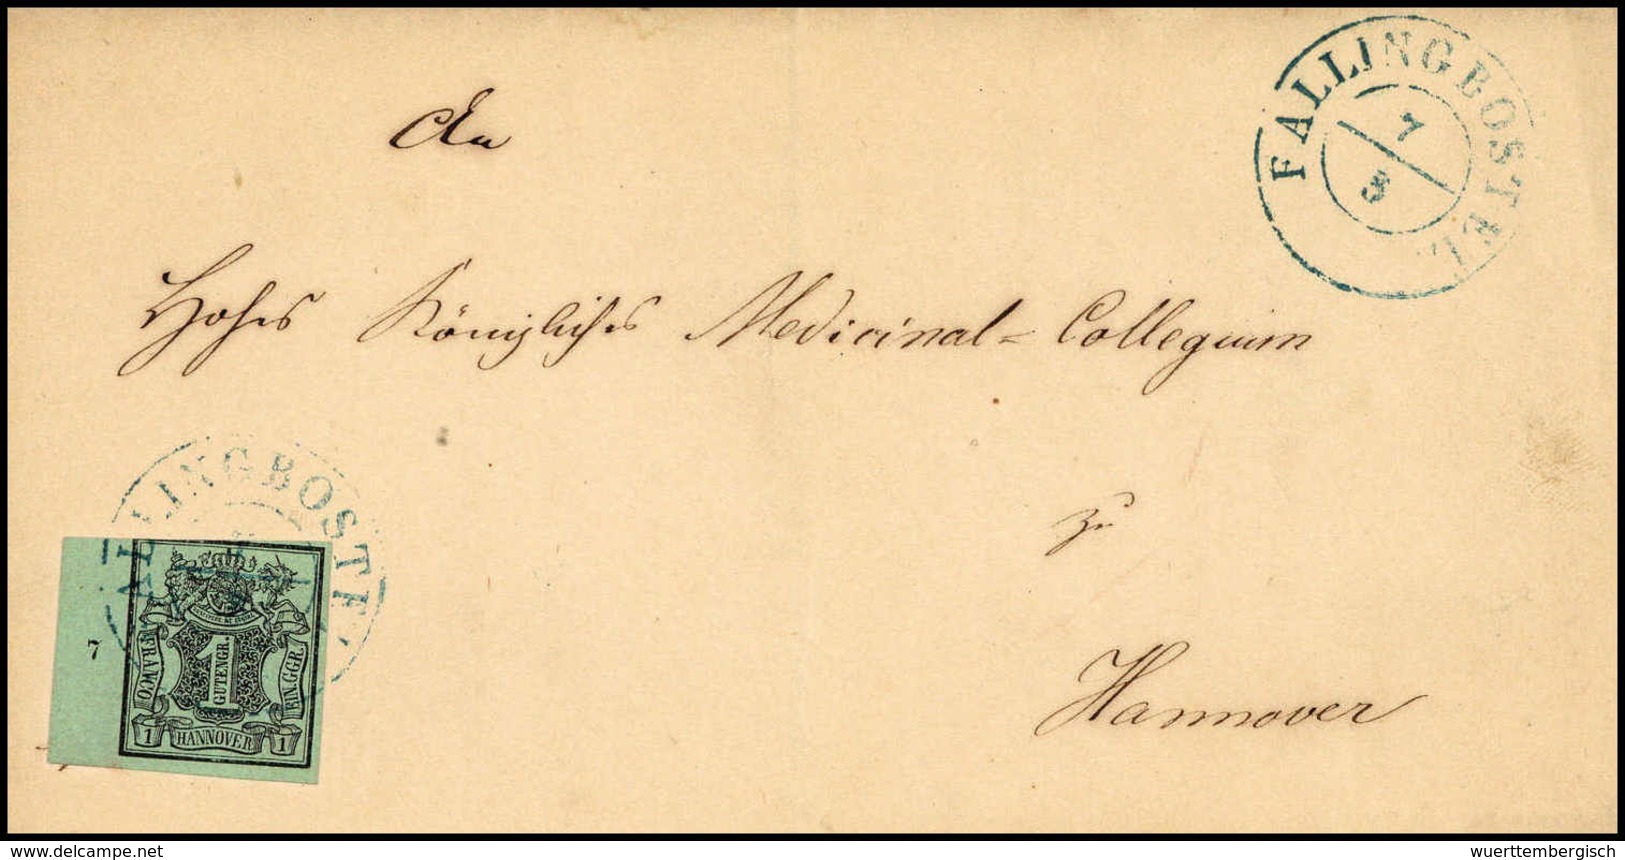 FALLINGBOSTEL
7
3
An
Hohes Königliches Medicinal-Collegium
zu
Hannover
ALLINGBOSTE
7
FRANCO
1 GUTENGR.
EIN.GGR.
1 HANNOVER 1
© www.delcampe.net
wuerttembergisch